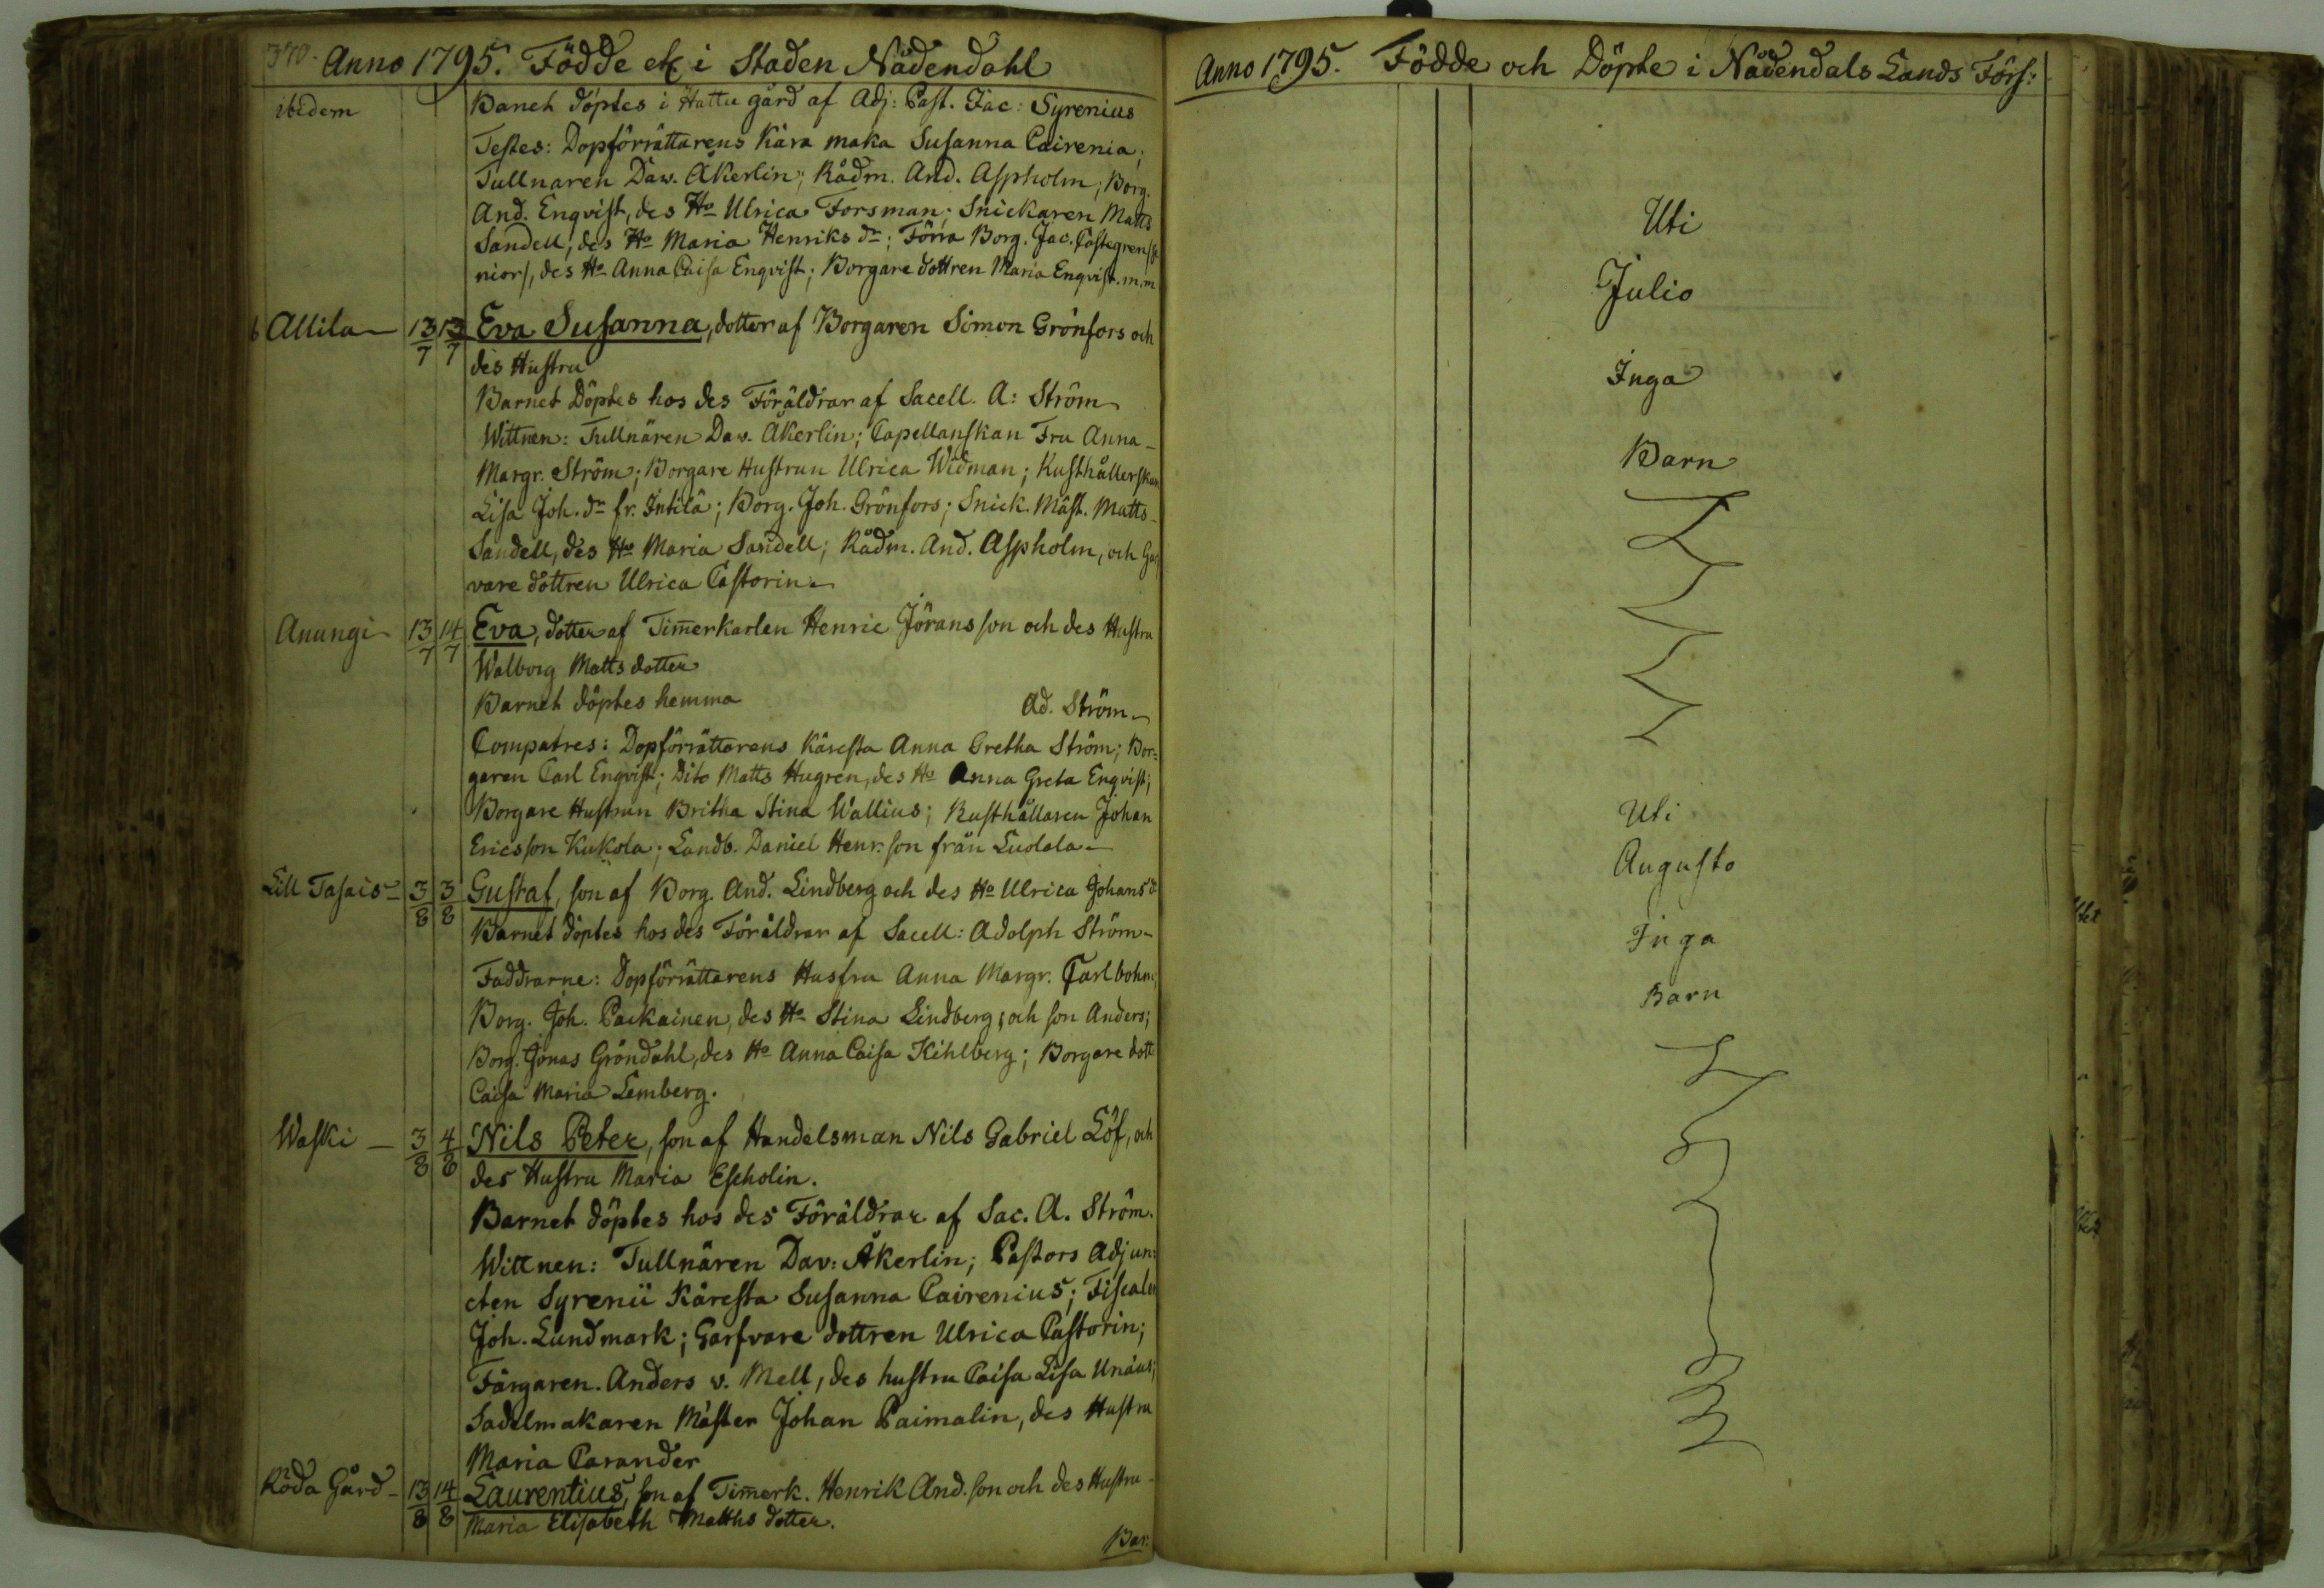 370. Anno 1795. Födde etc i Staden Nådendahl
ibidem Barnet döptes i Hattu gård af Adj: Past. Jac: Syrenius
Testes: Dopförrättarens Kära maka Susanna Cairenia;
Tullnaren Daw. Åkerlin; Rådm. And. Aspholm; Borg.
And. Enqvist, des Ho Ulrica Forsman; Snickaren Matts
Sandell; des Ho Maria Henriks dr; Förra Borg. Jac. Castegren /Se
nior/, des Ho Anna Caisa Enqvist; Borgare dottren Maria Enqvist. m.m
Allila 13/7 13/7 Eva Susanna, dotter af Borgaren Simon Grönfors och
des Hustru
Barnet Döptes hos des Föräldrar af Sacell. A: Ström
Wittnen: Tullnären Dav. Åkerlin; Capellanskan Fru Anna
Margr. Ström; Borgare Hustrun Ulrica Widman; Rusthållerskan
Lisa Joh. dr fr. Intilä; Borg. Joh. Grönfors; Snick. Mäst. Matts
Sandell, des Ho Maria Sandell; Rådm. And. Aspholm, och Gar
vare dottren Ulrica Castorin
Anungi 13/7 14/7 Eva, dotter af Timerkarlen Henric Jöransson och des Hustru
Walborg Matts dotter
Barnet döptes hemma Ad. Ström
Compatres: Dopförrättarens Käresta Anna Gretha Ström; Bor=
garen Carl Enqvist; Dito Matts Hugren, des Ho Anna Greta Enqvist;
Borgare Hustrun Britha Stina Wallius; Rusthållaren Johan
Ericsson Kukola; Landb. Daniel Henr. son från Luolala
Lill Tasais 3/8 3/8 Gustaf, son af Borg. And. Lindberg och des Ho Ulrica Johans dr
Barnet döptes hos des Föräldrar af Sacell: Adolph Ström
Faddrarne: Dopförrättarens Husfru Anna Margr. Carlbohm;
Borg. Joh. Packainen, des Ho Stina Lindberg, och son Anders;
Borg. Jonas Gröndahl, des Ho Anna Caisa Kihlberg; Borgare dott
Caisa Maria Lemberg.
Waski 3/8 4/8 Nils Peter, son af Handelsman Nils Gabriel Löf, och
des Hustru Maria Escholin.
Barnet döptes hos des Föräldrar af Sac. A. Ström.
Wittnen: Tullnären Dav: Åkerlin; Pastors Adjun=
cten Syrenii Käresta Susanna Cairenius; Fiscalen
Joh. Lundmark; Garfvare dottren Ulrica Castorin;
Färgaren Anders v. Mell, des hustru Caisa Lisa Unäus;
Sadelmakaren Mäster Johan Paimalin, des Hustru
Maria Carander
Röda Gård 13/8 14/8 Laurentius, son af Timerk. Henrik And. son och des Hustru
Maria Elisabeth Matths dotter.
Bar:
Anno 1795. Födde och Döpte i Nådendals Lands Förs:
Uti
Julio
Inga
Barn
Uti
Augusto
Inga
Barn